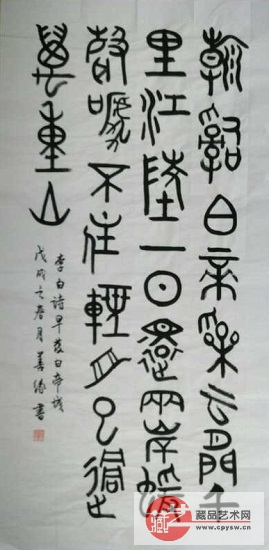 朝辭白帝采云間千
里江陵一日還兩岸蝯
聲嗁不住輕舟已過
萬重山
李白诗早發白帝城
戊戌之春月善書
藏
藏品艺术网
www.cpysw.cn